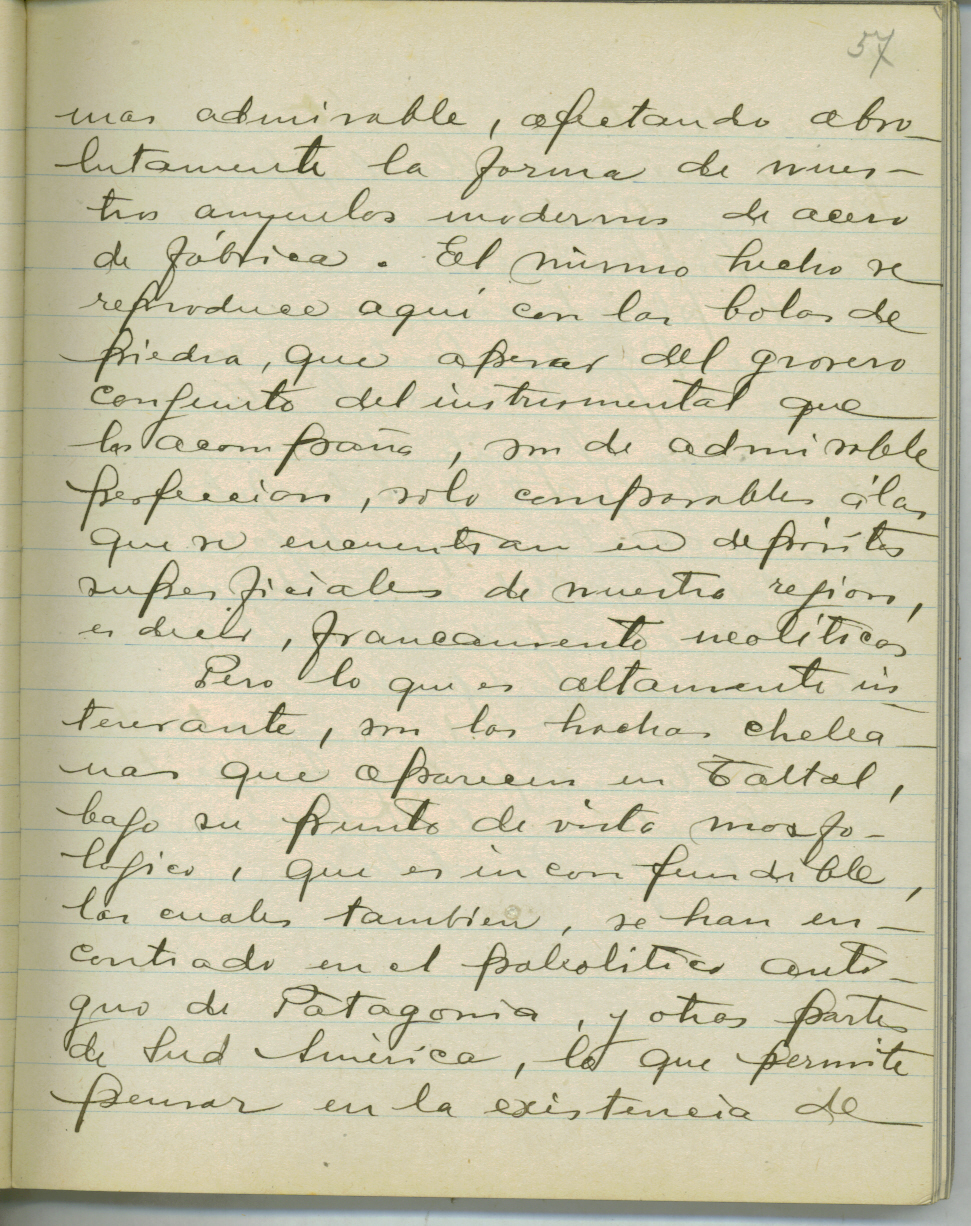 57
mas admirable, afectando abso-
lutamente la forma de nues-
tros anzuelos modernos de acero
de fábrica. El mismo hecho se
reproduce aquí con las bolas de
piedra, que apesar del grosero
conjunto del instrumental que
las acompaña, son de admirable
perfeccion, solo comparables á las
que se encuentran en depósitos
superficiales de nuestra region,
es decir, francamente neolíticos
Pero lo que es altamente in-
teresante, son las hachas chelea-
nas que aparecen en Taltal,
bajo su punto de vista morfo-
lógico, que es inconfundible,
las cuales tambien, se han en-
contrado en el paleolitico anti-
guo de Patagonia, y otras partes
de Sud América, lo que permite
pensar en la existencia de